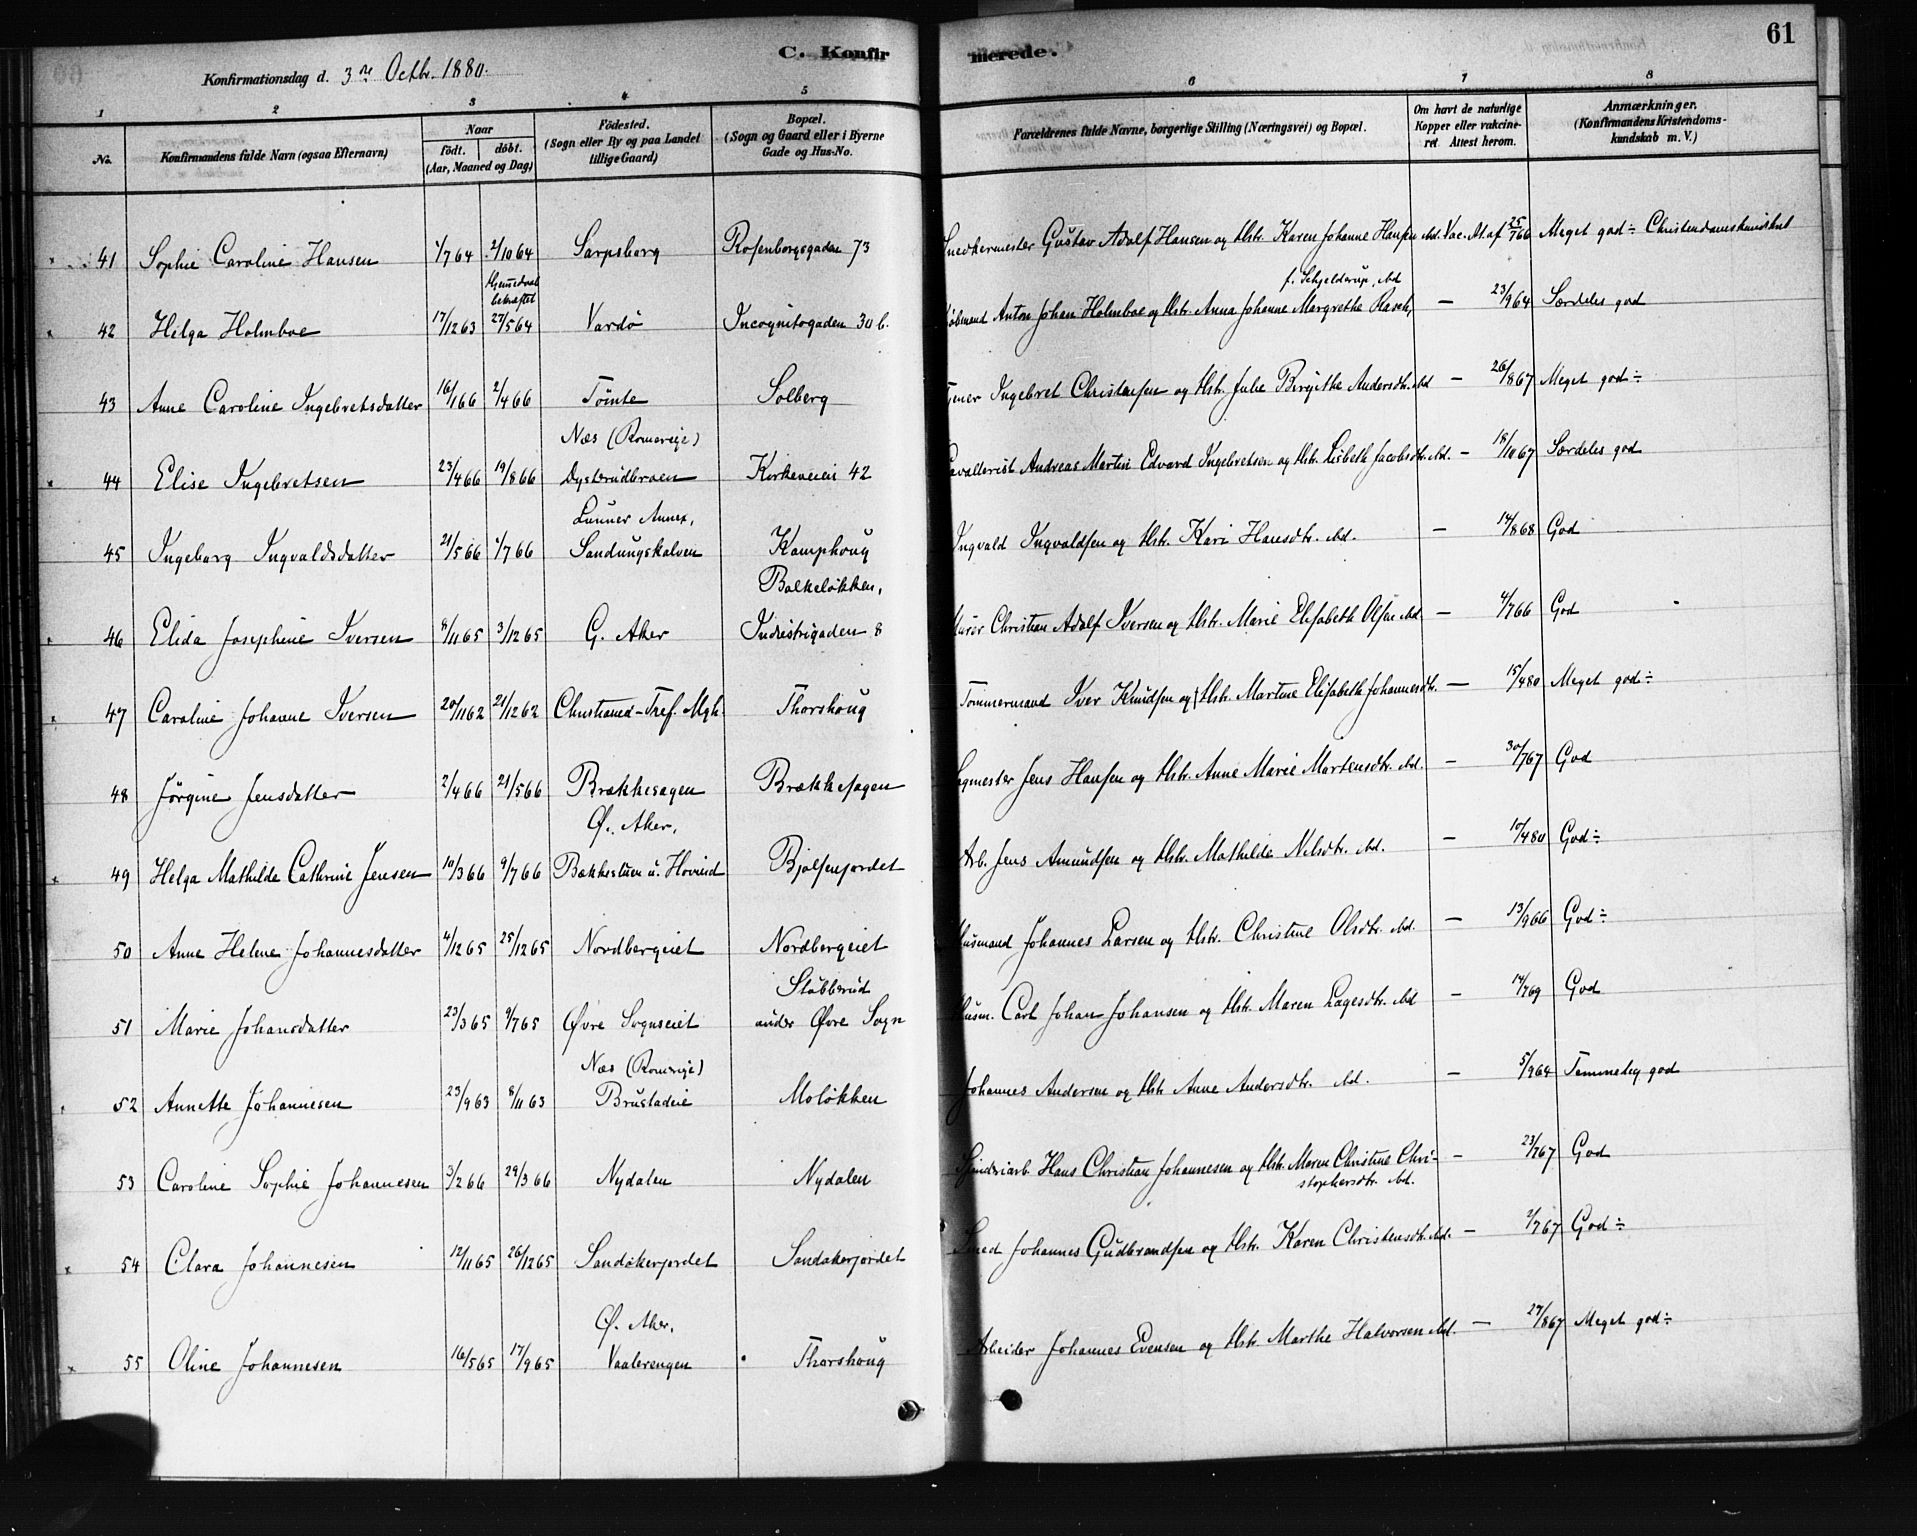 C. Konfirmerede.
61
Konfirmationsdag d. 3die Octbr. 1880.
1 2 3 4 5 6 7 8
No.
Konfirmandens fulde Navn (ogsaa Efternavn)
Naar
födt. döbt.
(Aar, Maaned og Dag)
Födested.
(Sogn eller By og paa Landet tillige Gaard)
Bopæl.
(Sogn og Gaard eller i Byerne Gade og Hus-No.
Forældrenes fulde Navne, borgerlige Stilling (Næringsvei) og Bopæl.
Om havt de naturlige Kopper eller vakcineret. Attest herom.
Anmærkninger.
(Konfirmandens Kristendomskundskab m. V.)
41 Sophie Caroline Hansen 1/7 64 2/10 64 Sarpsborg Rosenborggaden 73 Snedkermester Gustav Adolf Hansen og Hstr. Karen Johanne Hansen Ad. Vac. At. af 25/7 66 Meget god ÷ Christendomskundskab
42 Helga Holmboe 17/12 63 Hjemmedaab bekræftet 27/5 64 Vardö Incognitogaden 30 b. Kjøbmand Anton Johan Holmboe og Hstr. Anna Johanne Margrethe Rasch, f. Schjelderup, Ad — 23/9 64 Særdeles god
43 Anne Caroline Ingebretsdatter 16/1 66 2/4 66 Tömte Solberg Ingebret Christensen og Hstr. Julie Birgithe Andersdtr. Ad — 26/8 67 Meget god ÷
44 Elise Ingebretsen 23/4 66 19/8 66 Næs (Romerige) Dysterudbroen Kirkeveien 42 Cavallerist Andreas Martin Edvard Ingebretsen og Hstr. Lisbeth Jacobsdtr. Ad. — 18/10 67 Særdeles god
45 Ingeborg Ingvaldsdatter 21/5 66 1/7 66 Lunner Annex, Sandungskalven Kamphoug Ingvald Ingvaldsen og Hstr. Kari Hansdtr. Ad. — 14/8 68 God
46 Elida Josephine Iversen 8/11 65 3/12 65 G. Aker Balkeløkken, Industrigaden 8 Murer Christian Adolf Iversen og Hstr. Marie Elisabeth Olsen Ad — 4/7 66 God
47 Caroline Johanne Iversen 20/11 62 21/12 62 Christiania-Tref. Mgh. Thorshoug Tømmermand Iver Knudsen og Hstr. Martine Elisabeth Johannesdtr. — 15/4 80 Meget god ÷
48 Jørgine Jensdatter 2/4 66 21/5 66 Brækkesagen Brækkesagen Sagmester Jens Hansen og Hstr. Anne Marie Mortensdtr. Ad. — 30/7 67 God
49 Helga Mathilde Cathrine Jensen 10/3 66 9/7 66 Ø. Aker, Bækkestuen u. Hovind Bjølsenjordet Arb. Jens Amundsen og Hstr. Mathilde Nilsdtr. Ad. — 10/4 80 God ÷
50 Anne Helene Johannesdatter 4/12 65 25/12 65 Nordbergeiet Nordbergeiet Husmand Johannes Larsen og Hstr. Christine Olsdtr. Ad. — 13/9 66 God ÷
51 Marie Johansdatter 23/3 65 9/7 65 Øvre Sogneeiet Støbberud under Øvre Sogn Husm. Carl Johan Johansen og Hstr. Maren Lagesdtr. Ad — 14/7 69 God
52 Annette Johannesen 23/9 63 8/11 63 Næs (Romerige) Brustadeie Moløkken Johannes Andersen og Hstr. Anne Andersdtr. Ad. — 5/9 64 Temmelig god
53 Caroline Sophie Johannesen 3/2 66 29/3 66 Nydalen Nydalen Spinderiarb. Hans Christian Johannesen og Hstr. Maren Christine Christophersdtr. Ad. — 23/7 67 God
54 Clara Johannesen 12/11 65 26/12 65 Sandakerjordet Sandakerjordet Smed Johannes Gudbrandsen og Hstr. Karen Christensdtr. Ad. — 2/7 67 God ÷
55 Oline Johannesen 16/5 65 17/9 65 Ø. Aker, Vaalerengen Thorshoug Arbeider Johannes Evensen og Hstr. Marthe Halvorsen Ad. — 27/8 67 Meget god ÷